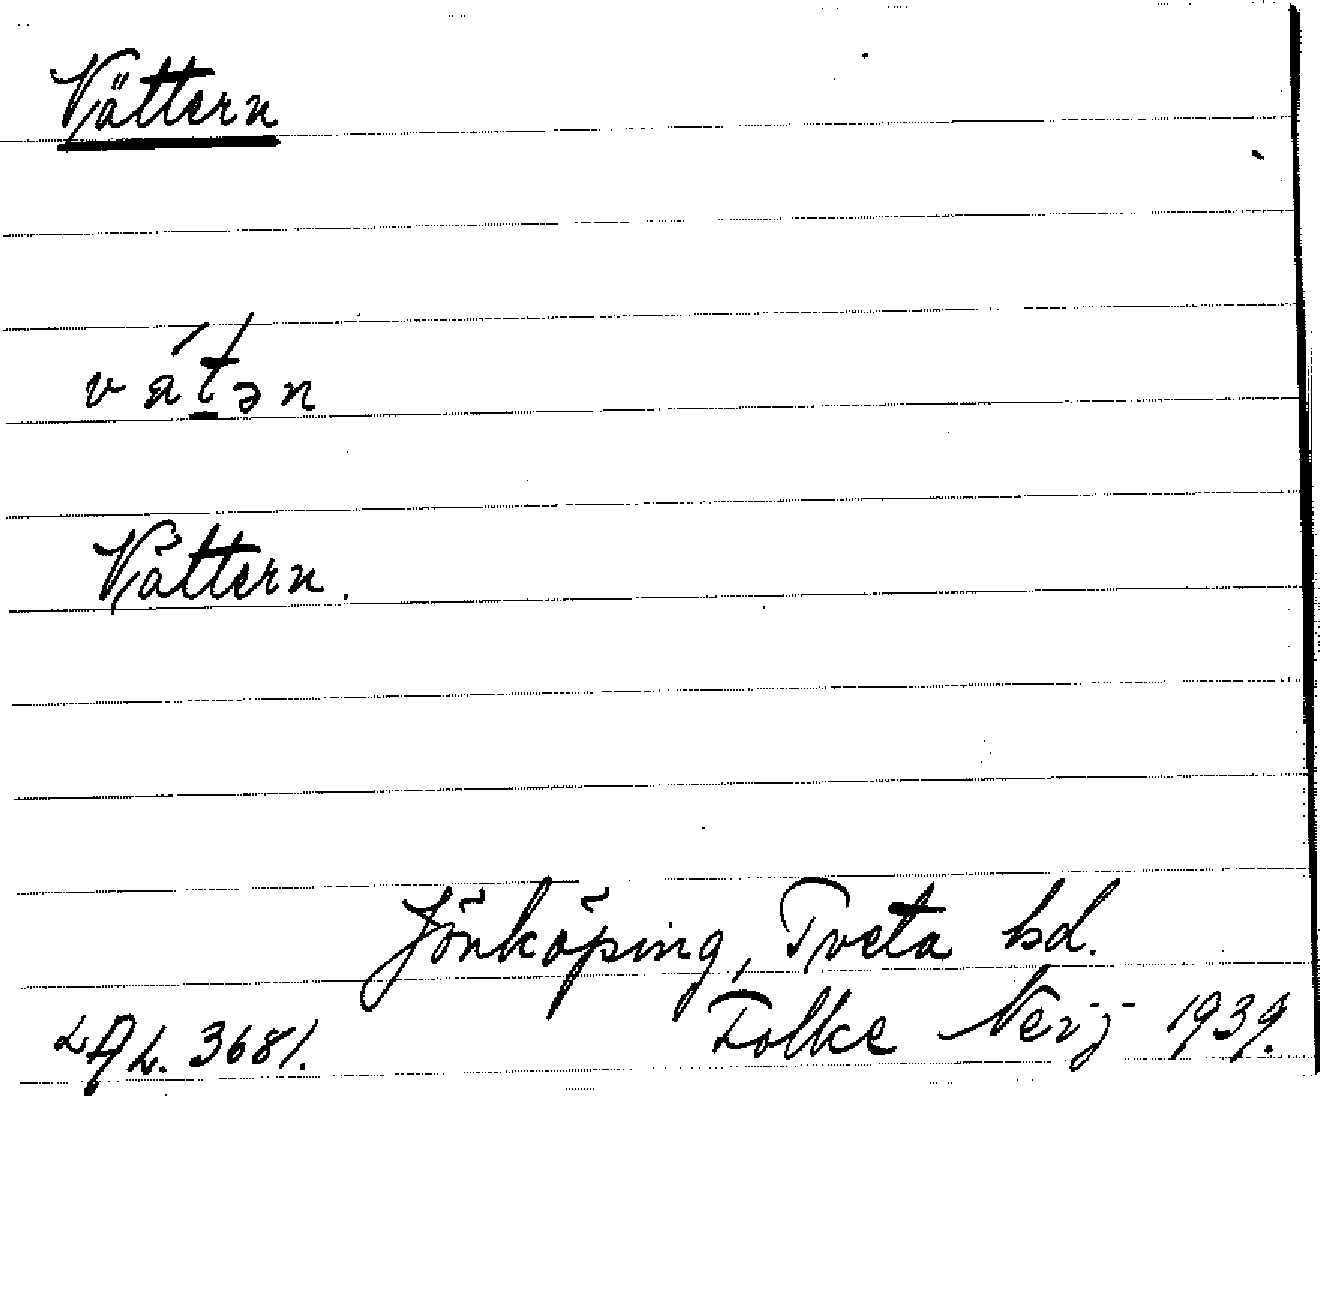 Vättern
vát̠ən
Vättern.
Jönköping, Tveta hd.
LAL. 3681. Folke Nerj 1939.